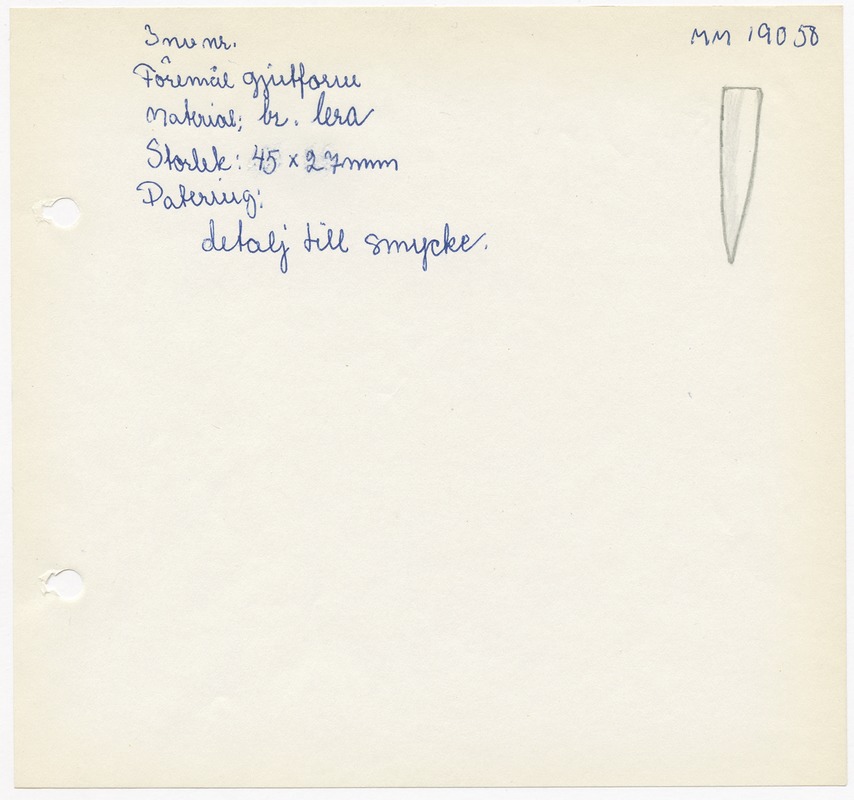 Inv nr.
MM 19058
Föremål gjutform
Material: br. lera
Storlek: 45 x 27 mm
Datering:
detalj till smycke.